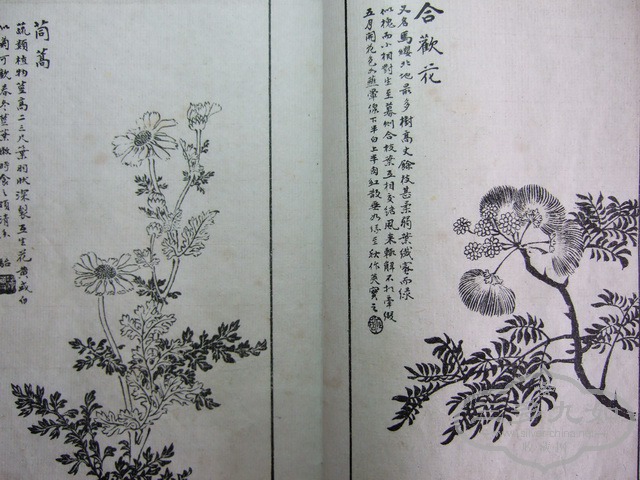 合歡花
又名馬纓北地最多樹高丈餘枝甚柔弱葉纖密而綠
似槐而小相對生至暮則合枝葉互相交結風來輒解不相牽綴
五月開花色如蘸暈線下半白上半肉紅散垂如絲至秋作莢實
茼蒿
蔬類植物莖高二三尺葉羽狀深裂互生花黃或白
似菊可觀春冬莖葉嫩時食之頗清